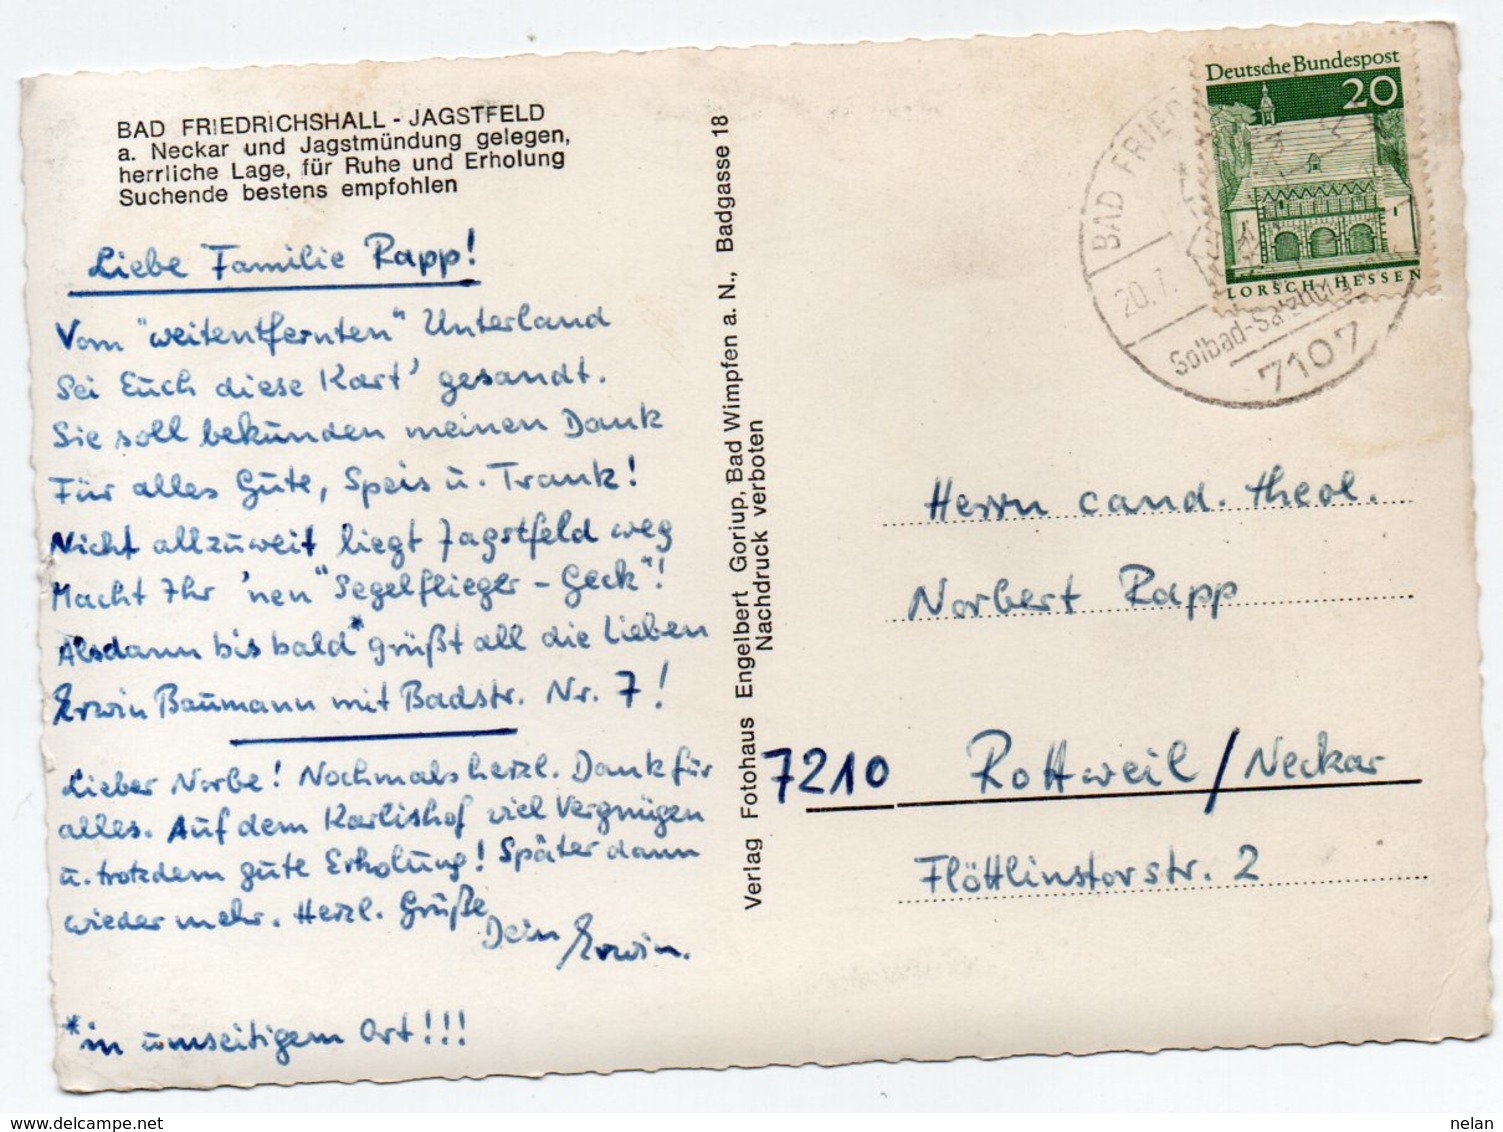 BAD FRIEDRICHSHALL - JAGSTFELD
a. Neckar und Jagstmündung gelegen,
herrliche Lage, für Ruhe und Erholung
Suchende bestens empfohlen
Liebe Familie Rapp!
Vom "weitentfernten" Unterland
Sei Euch diese Kart' gesandt.
Sie soll bekunden meinen Dank
Für alles Gute, Speis u. Trank!
Nicht allzuweit liegt Jagstfeld weg
Macht Ihr 'nen "Segelflieger-Geck"!
Alsdann bis bald* grüßt all die Lieben
Erwin Baumann mit Badstr. Nr. 7!
Lieber Norbe! Nochmals herzl. Dank für
alles. Auf dem Karlishof viel Vergnügen
u. trotzdem gute Erholung! Später dann
wieder mehr. Herzl. Grüße
Dein Erwin.
*in umseitigem Ort!!!
Verlag Fotohaus Engelbert Goriup, Bad Wimpfen a. N., Badgasse 18
Nachdruck verboten
Deutsche Bundespost
20
LORSCH/HESSEN
BAD FRIED
20.7.
Solbad-Salzburg
7107
Herrn cand. theol.
Norbert Rapp
7210 Rottweil/Neckar
Flöttlinstorstr. 2
www.delcampe.net
nelan